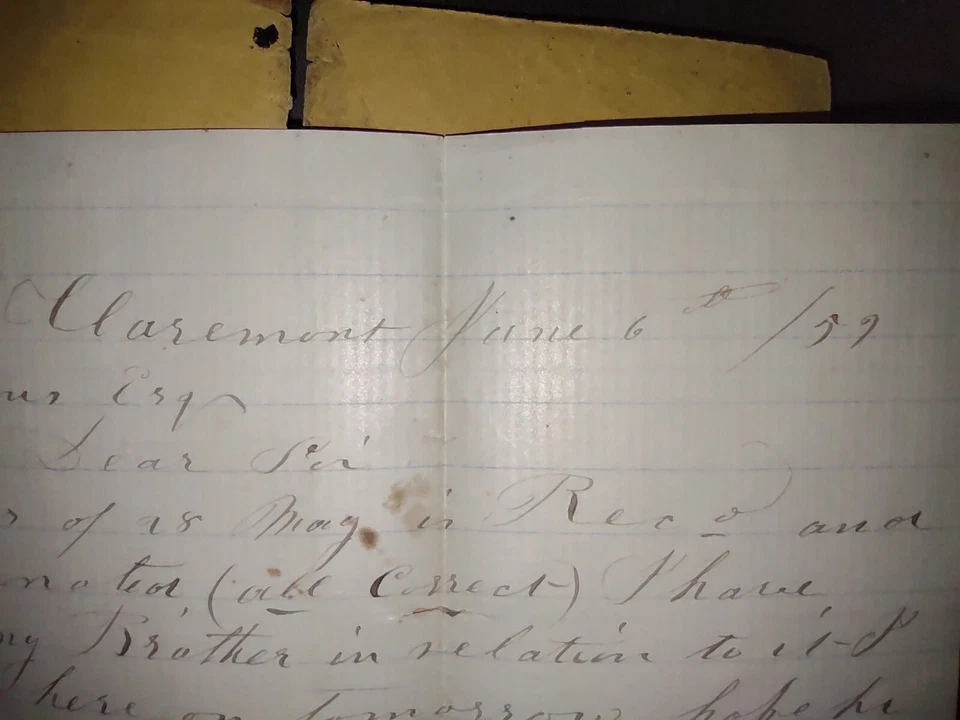 Claremont June 6th /59
Esq
Dear Sir
of 28 May is Recd and
noted (all Correct) I have
Brother in relation to it I
here on tomorrow hope he